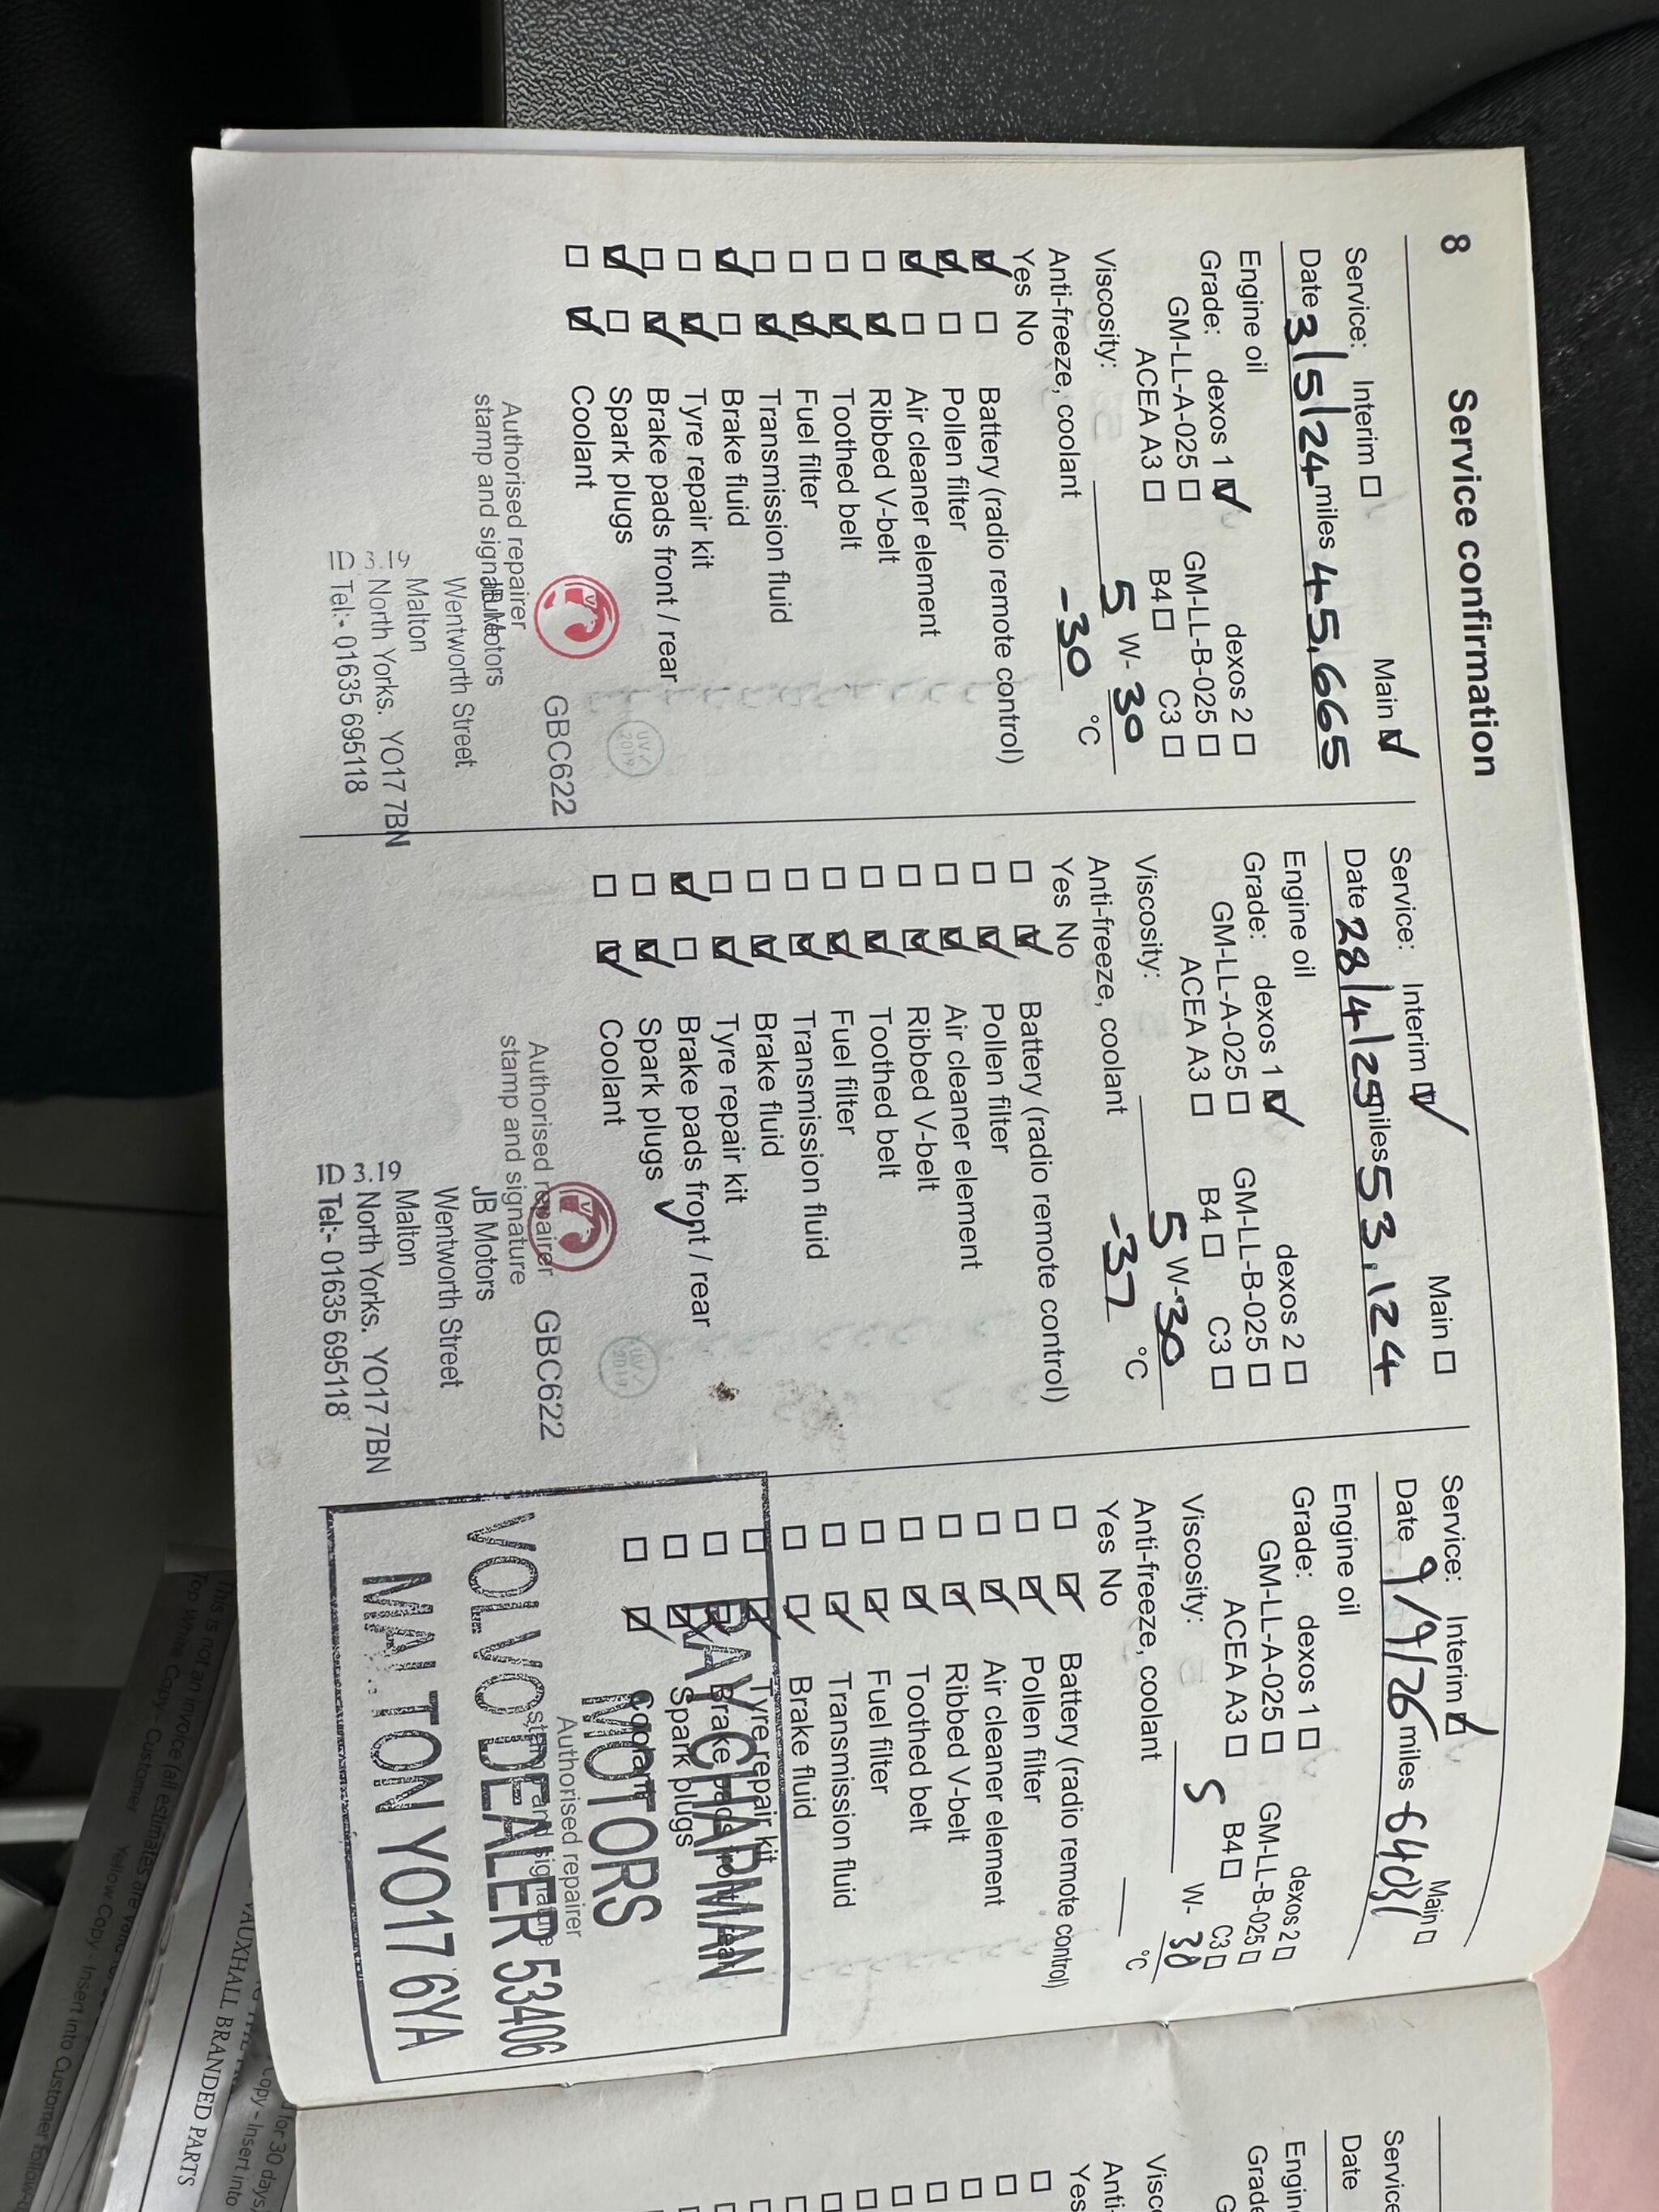 8 Service confirmation
Service: Interim Main
Date 3/5/24 miles 45,665
Engine oil
Grade: dexos 1 dexos 2
GM-LL-A-025 GM-LL-B-025
ACEA A3 B4 C3
Viscosity: 5 W-30
Anti-freeze, coolant -30 °C
Yes No
Battery (radio remote control)
Pollen filter
Air cleaner element
Ribbed V-belt
Toothed belt
Fuel filter
Transmission fluid
Brake fluid
Tyre repair kit
Brake pads front / rear
Spark plugs
Coolant
GBC622
Authorised repairer
stamp and signature
JB Motors
Wentworth Street
Malton
North Yorks. YO17 7BN
Tel:- 01635 695118
Service: Interim Main
Date 28/4/25 miles 53,124
Engine oil
Grade: dexos 1 dexos 2
GM-LL-A-025 GM-LL-B-025
ACEA A3 B4 C3
Viscosity: 5 W-30
Anti-freeze, coolant -37 °C
Yes No
Battery (radio remote control)
Pollen filter
Air cleaner element
Ribbed V-belt
Toothed belt
Fuel filter
Transmission fluid
Brake fluid
Tyre repair kit
Brake pads front / rear
Spark plugs
Coolant
GBC622
Authorised repairer
stamp and signature
JB Motors
Wentworth Street
Malton
3.19 North Yorks. YO17 7BN
Tel:- 01635 695118
Service: Interim Main
Date 9/9/26 miles
Engine oil
Grade: dexos 1 dexos 2
GM-LL-A-025 GM-LL-B-025
ACEA A3 B4 C3
Viscosity: 5 W-30
Anti-freeze, coolant °C
Yes No
Battery (radio remote control)
Pollen filter
Air cleaner element
Ribbed V-belt
Toothed belt
Fuel filter
Transmission fluid
Brake fluid
Tyre repair kit
Brake pads front / rear
Spark plugs
Coolant
Authorised repairer
stamp and signature
RAY CHAPMAN
MOTORS
VOLVO DEALER 53406
MALTON YO17 6YA
Service
Date
Yes
for 30 days
Copy - Insert into
VAUXHALL BRANDED PARTS
This is not an invoice (all estimates are
Top White Copy - Customer Yellow Copy - Insert into Customer